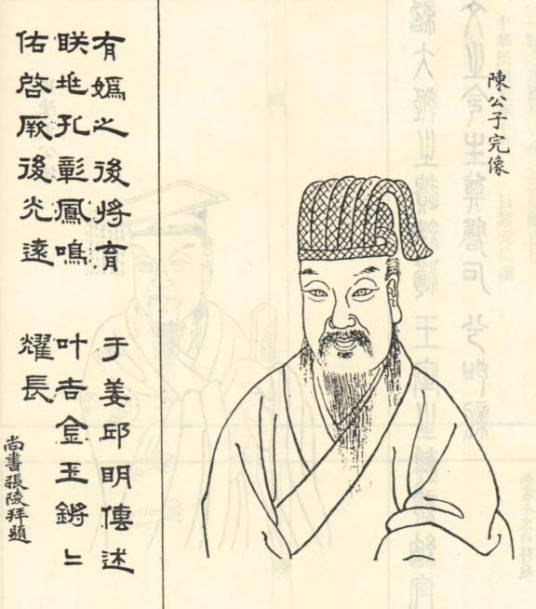 陳公子完像
有媯之後將育 于姜邱明傳述
朕兆孔彰鳳鳴 叶吉金玉鏘〻
佑啓厥後光遠 耀長
尚書張陵拜題